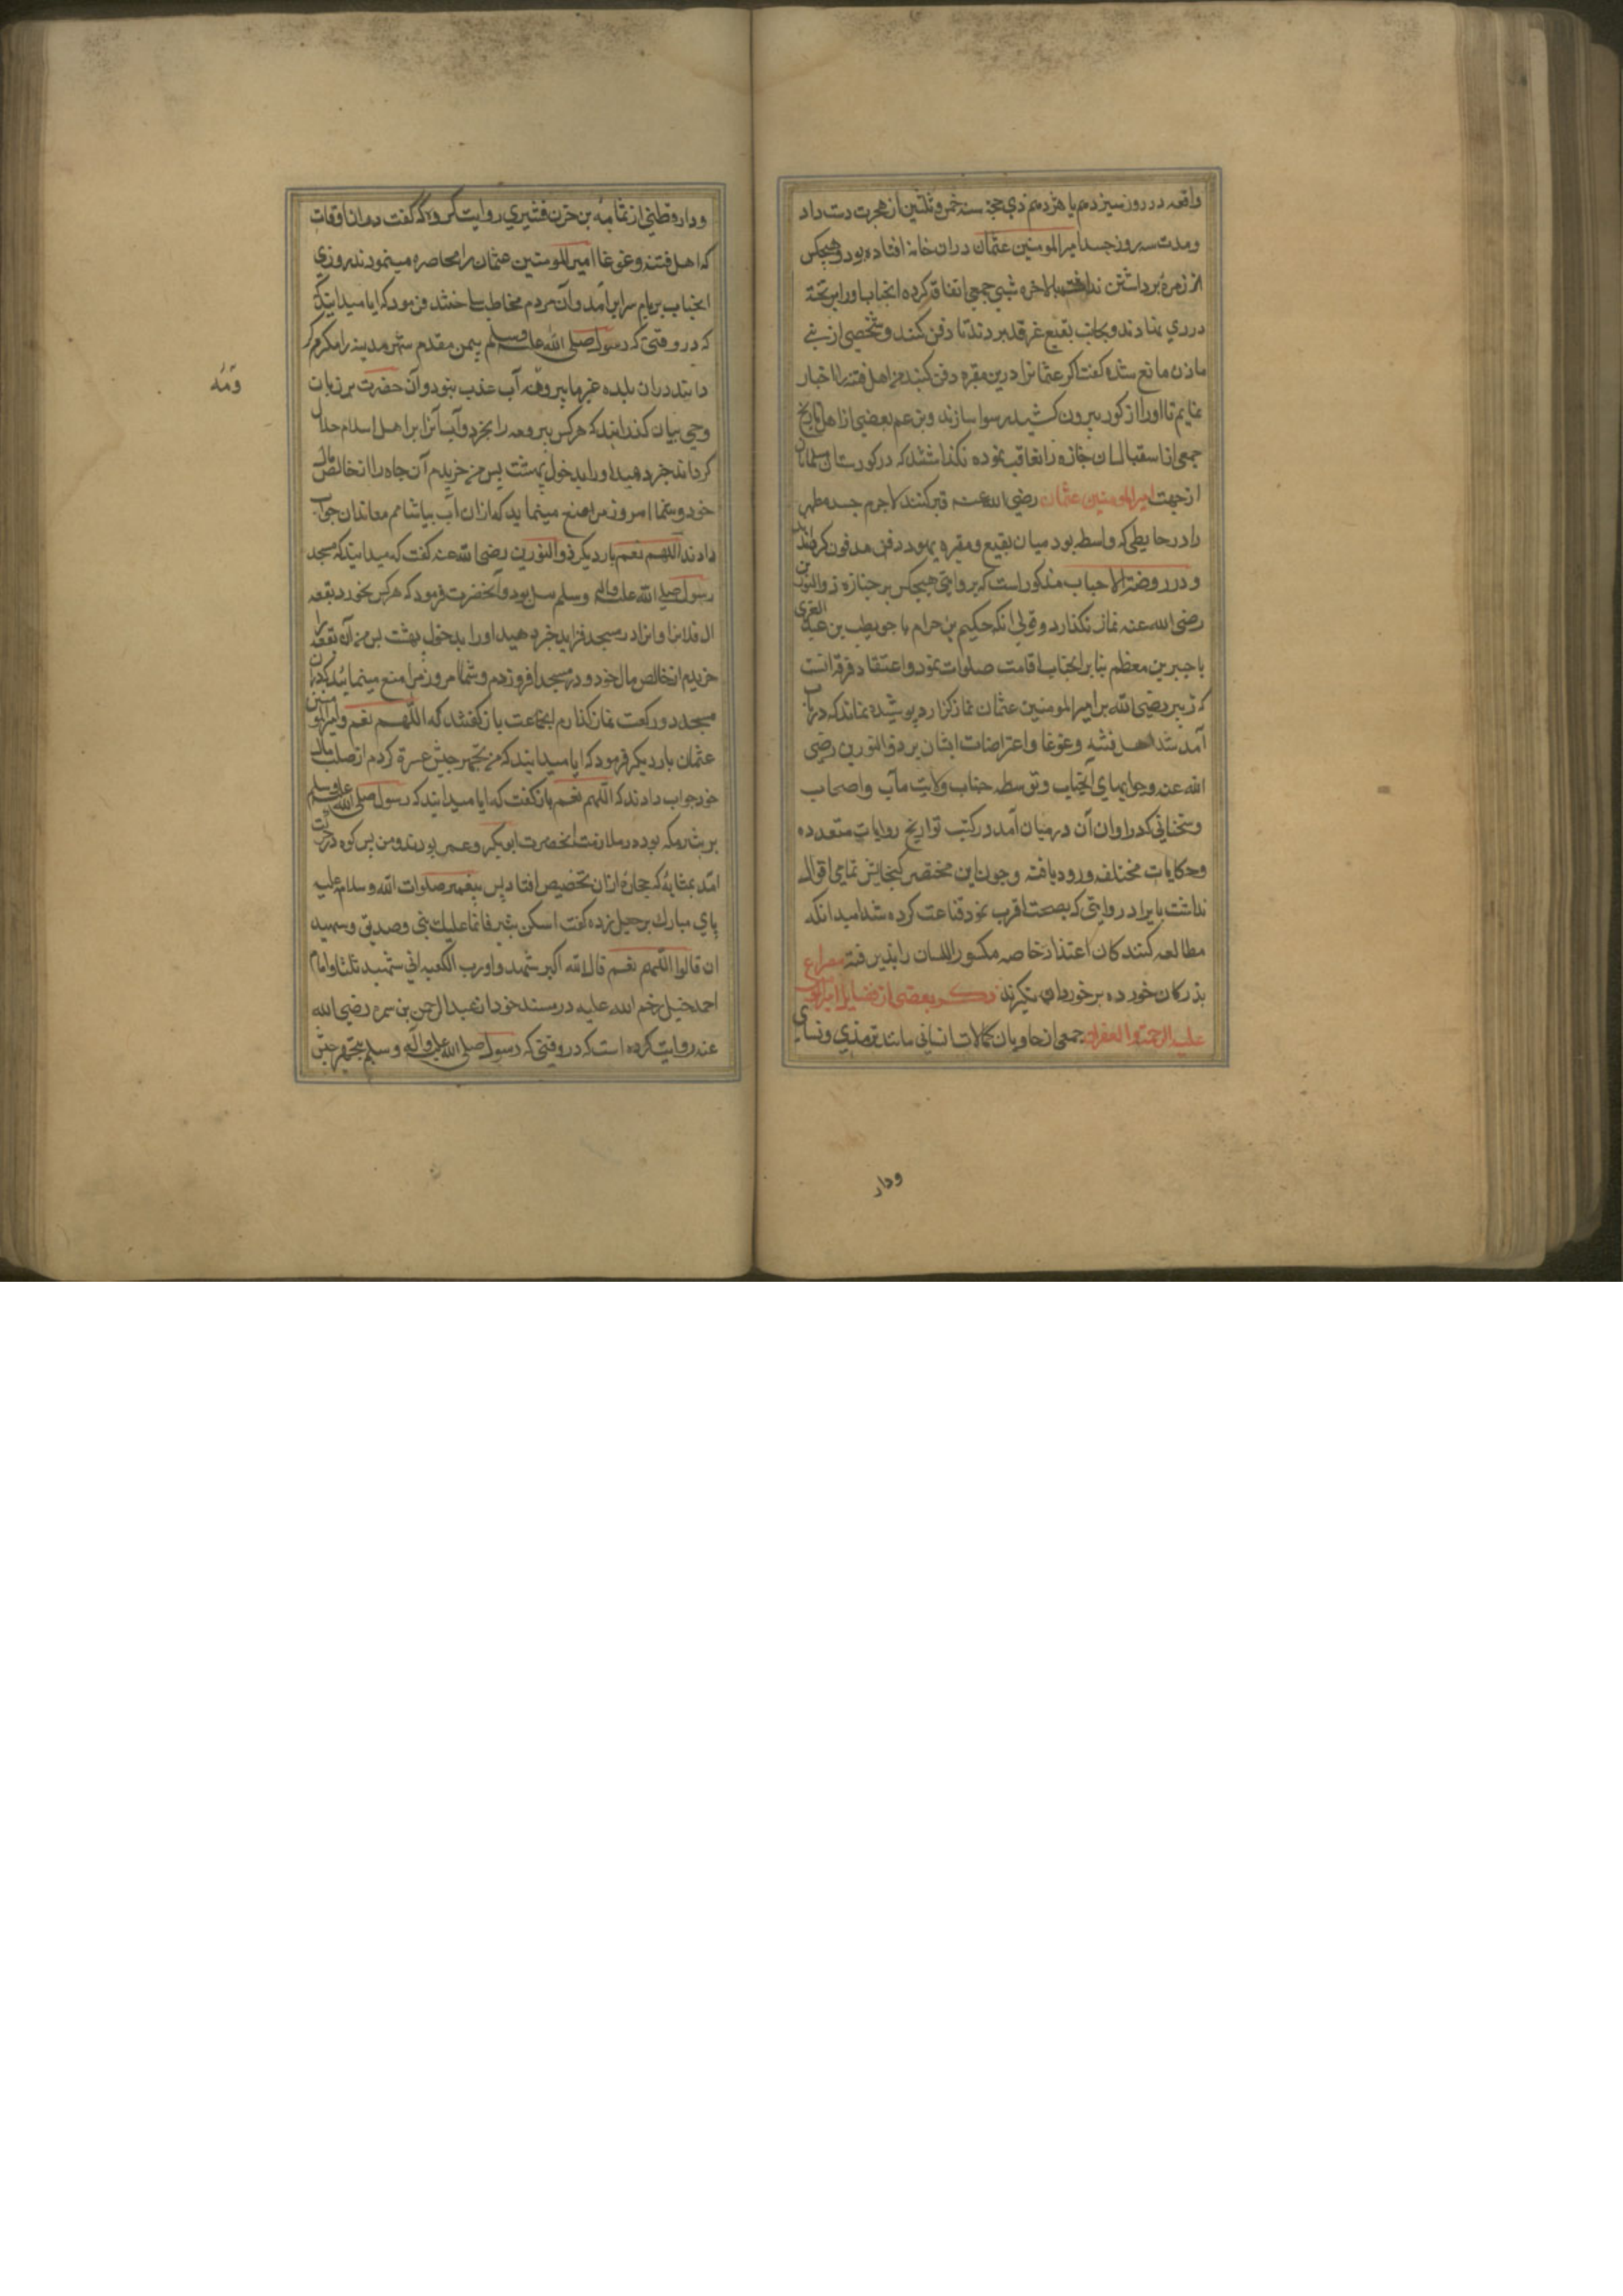 واقعه در روز سیزدهم یا هژدهم ذی حجه سنه خمس و ثلثین از هجرت دست داد
و مدت سه روز جسد امیرالمومنین عثمان دران خانه افتاده بود و هیچکس
از زمره برداشتن نداشت بالاخره شبی جمعی اتفاق کرده انجناب را بر تخته
دری نهادند و بجانب بقیع غرقد بردند تا دفن کنند و شخصی از بنی
مازن مانع شده کفت اکر عثمانرا درین مقبره دفن کنید من اهل فتنه را اخبار
نمایم تا اورا از کور بیرون کشیده رسوا سازند و بزعم بعضی از اهل تاریخ
جمعی از جنازه را تعاقب نموده نکذاشتند که در کورستان مسلمانان
از جهت امیرالمومنین عثمان رضی الله عنه قبر کنند لاجرم جسد مطهر
را در حایطی که واسطه بود میان بقیع و مقبره یهود دفن مدفون کردانیدند
و در روضة الاحباب مذکور است که بروایتی هیچکس بر جنازه ذوالنورین
رضی الله عنه نماز نکذارد و قولی انکه حکیم بن حرام یا حویطب بن عبد العزی
یا جبیر بن مطعم بنا بر انجناب اقامت صلوات نمود و اعتقاد فرقه انست
که زبیر رضی الله بر امیرالمومنین عثمان نماز کزارد پوشیده نماند که در باب
آمد شد اهل فتنه و غوغا و اعتراضات ایشان بر ذوالنورین رضی
الله عنه و جوابهای انجناب و توسط جناب ولایت مآب و اصحاب
و سخنانی که دراوان آن درمیان آمد در کتب تواریخ روایات متعدده
و حکایات مختلفه ورود یافته و چون این مختصر کنجایش تمامی اقوال
نداشت بایراد روایتی که بصحت اقرب نمود قناعت کرده شد امید انکه
مطالعه کنندکان اعتذار خامه مکسور اللسان را پذیرفته مصراع
بزرکان خورده بر خوردان نکیرند ذکر بعضی از فضایل امیرالمومنین
علیه الرحمة و الغفران جمعی از حاویان کمالات انسانی مانند ترمذی و نسای
ودار
و دارقطنی از ثمامه بن حزن قشیری روایت کرده که کفت دران اوقات
که اهل فتنه و غوغا امیرالمومنین عثمان را محاصره مینمودند روزی
انجناب بر بام سرای برآمد و آن مردم مخاطب ساخته فرمود که ایا میدانید
که در وقتی که رسول صلی الله علیه وسلم بیمن مقدم شهر مدینه را مکرم کر
دانید دران بلده غیر ماء بیر رومه آب عذب نبود و آن حضرت بر زبان
ومه
وحی بیان کذرانید که هرکس بیر رومه را بخرد و آب آنرا بر اهل اسلام حلال
کرداند جزا دهند اورا بدخول بهشت پس من خریدم آن جاه را از خالص مال
خود و شما امروز مرا منع مینماید که ازان آب بیاشامم معاندان جواب
دادند اللهم نعم بار دیکر ذوالنورین رضی الله عنه کفت که میدانید که مسجد
رسول صلی الله علیه واله وسلم بود و آنحضرت فرمود که هرکس بخرد بقعه
ال فلانرا و انرا در مسجد فزاید جزا دهند اورا بدخول بهشت پس من آن بقعه را
خریدم از خالص مال خود و در مسجد افزودم و شما امروز مرا منع مینمایند که دران
مسجد دو رکعت نماز کذارم انجماعت باز کفتند که اللهم نعم و امیرالمومنین
عثمان بار دیکر فرمود که ایا میدانید که من تجهیز جیش عسرة کردم از صلب مال
خود جواب دادند که اللهم نعم باز کفت که ایا میدانید که رسول صلی الله علیه وسلم
بر ثبیر مکه بوده در ملازمت انحضرت ابوبکر و عمر بودند و من پس کوه در حرکت
امد بمثابه که حجاره ازان بحضیض افتاد پس پیغمبر صلوات الله و سلامه علیه
پای مبارک بر جبل زده کفت اسکن ثبیر فانما علیک نبی و صدیق و شهید
ان قالوا اللهم نعم قال الله اکبر شهدوا ورب الکعبه انی شهید ثلثا و امام
احمد حنبل رحم الله علیه در مسند خود از عبدالرحمن بن سمره رضی الله
عنه روایت کرده است که در وقتی که رسول صلی الله علیه وآله وسلم تجهیز جیش